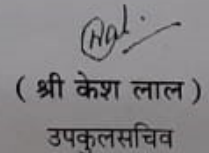 ( श्री केश लाल )
उपकुलसचिव